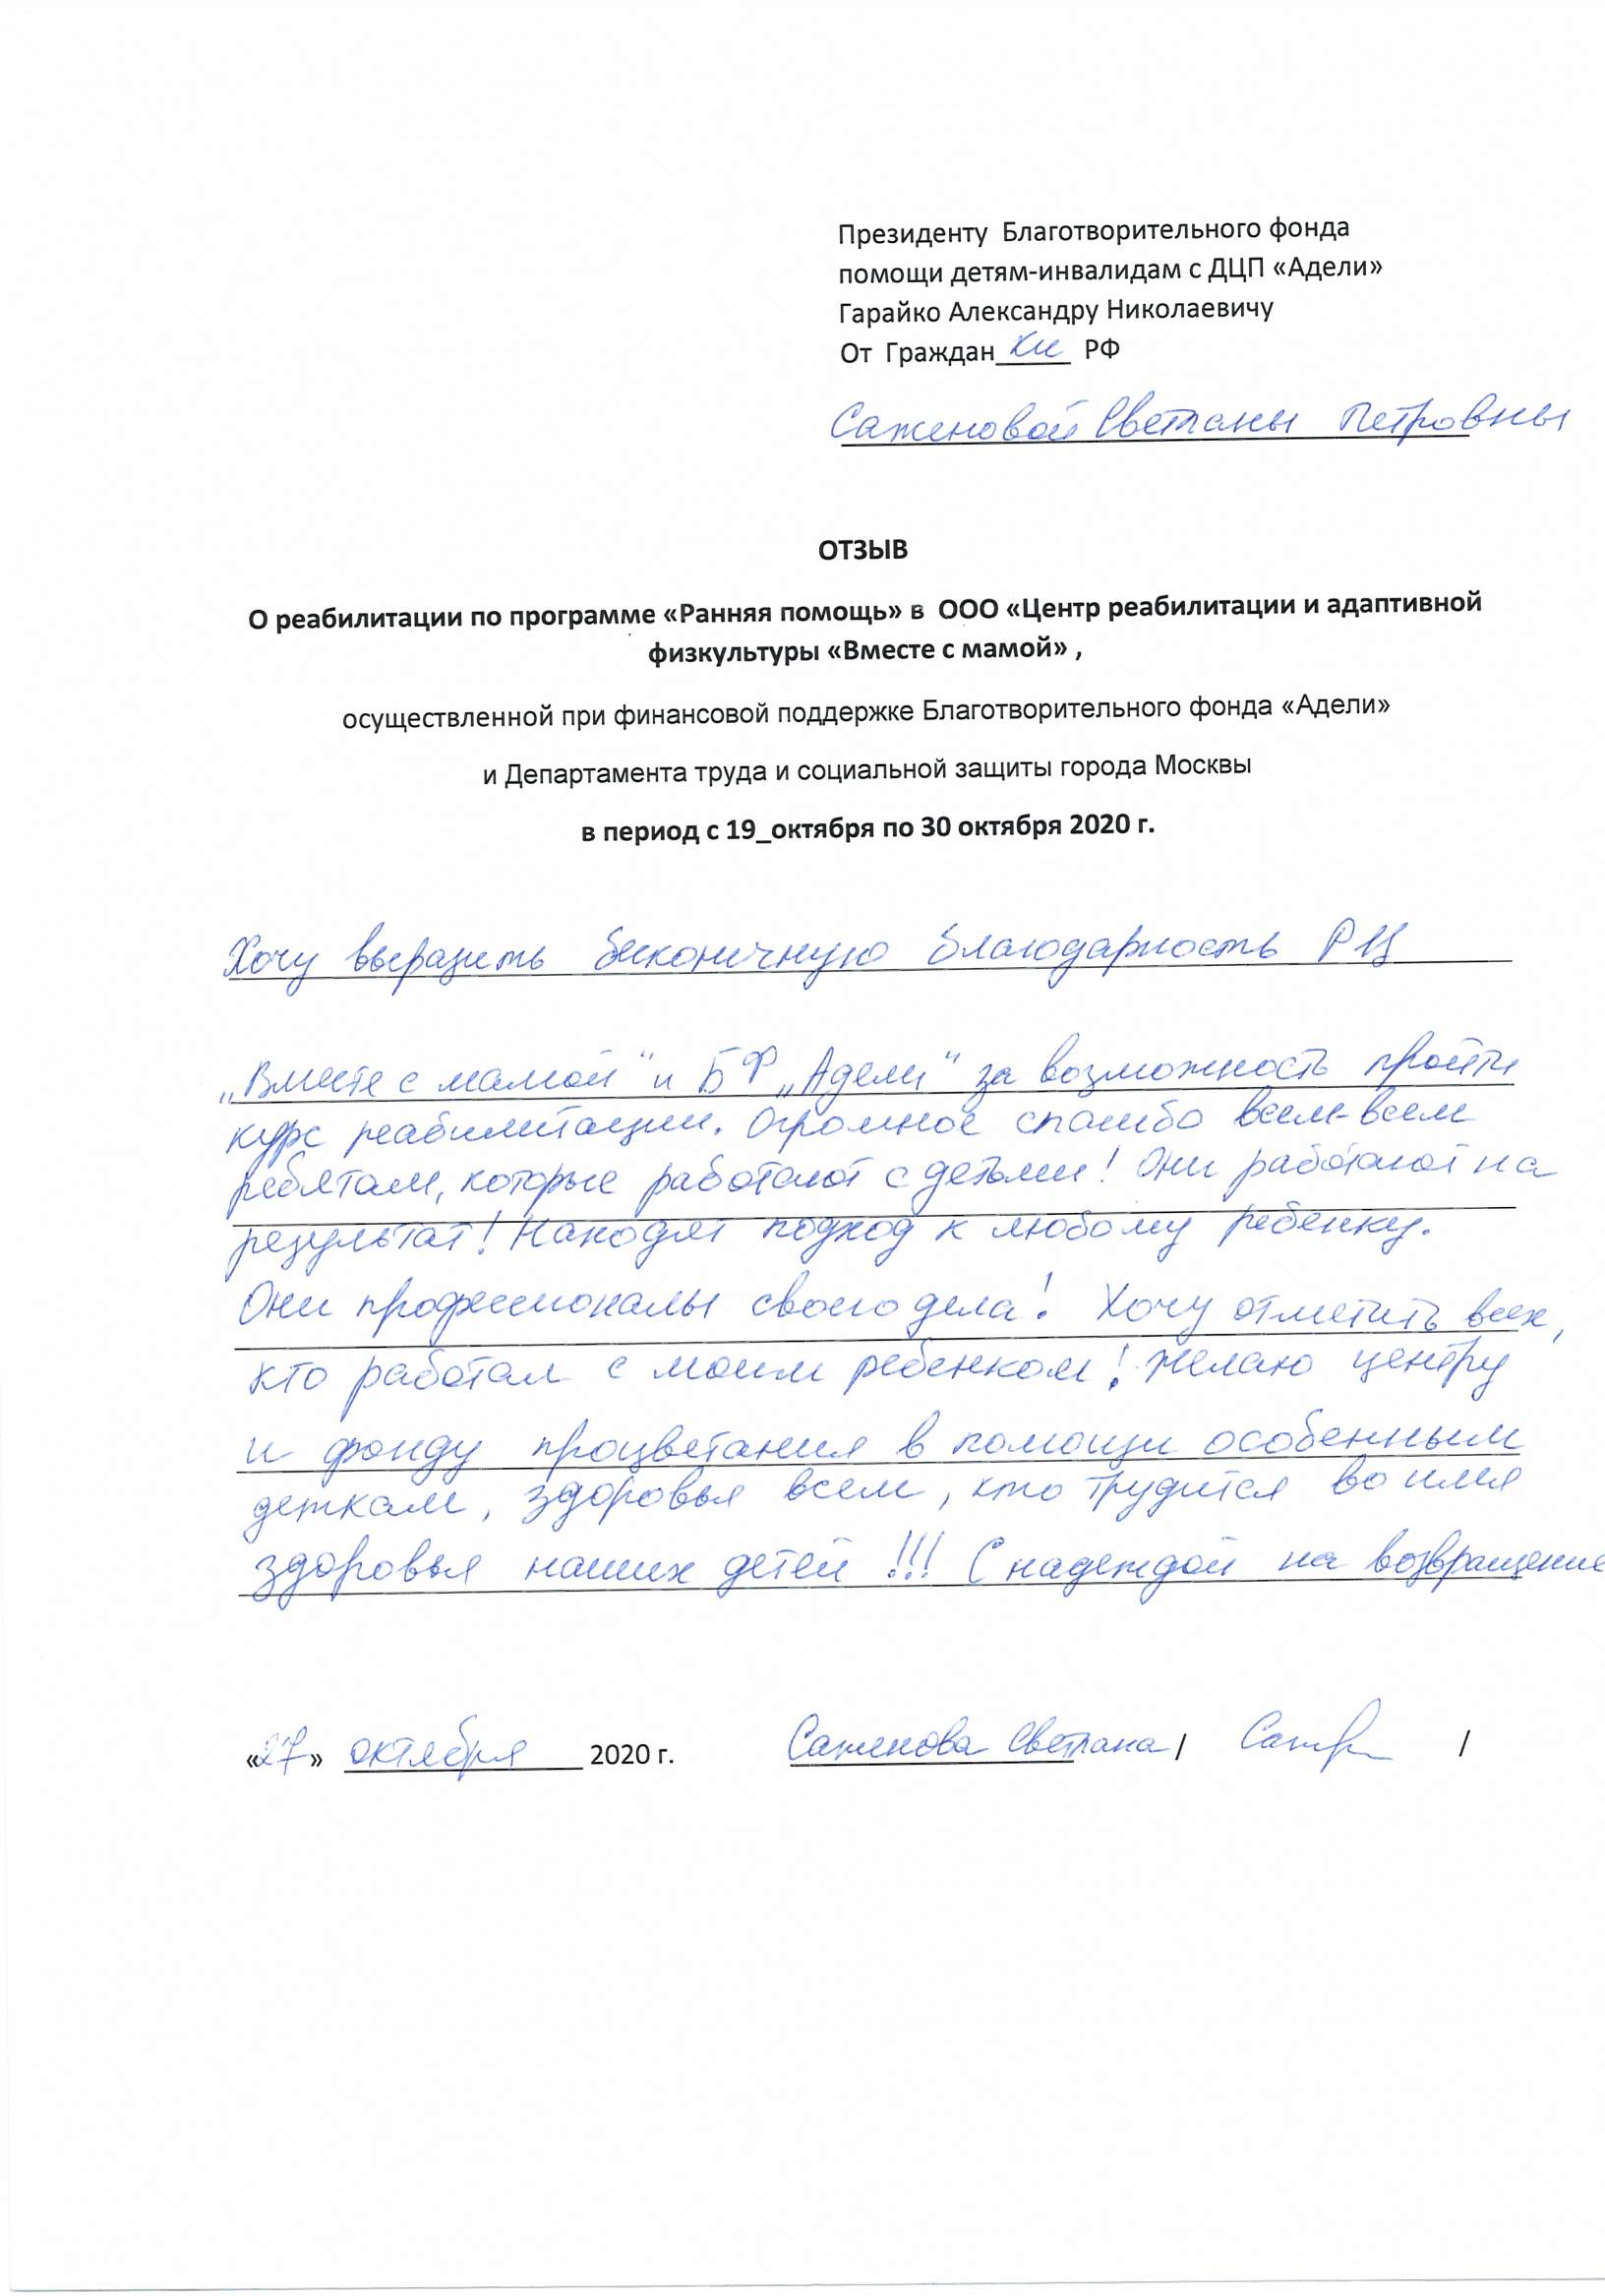 Президенту Благотворительного фонда
помощи детям-инвалидам с ДЦП «Адели»
Гарайко Александру Николаевичу
От Гражданки РФ
Саженовой Светланы Петровны
ОТЗЫВ
О реабилитации по программе «Ранняя помощь» в ООО «Центр реабилитации и адаптивной
физкультуры «Вместе с мамой» ,
осуществленной при финансовой поддержке Благотворительного фонда «Адели»
и Департамента труда и социальной защиты города Москвы
в период с 19_октября по 30 октября 2020 г.
Хочу выразить бесконечную благодарность РЦ
„Вместе с мамой" и БФ „Адели" за возможность пройти
курс реабилитации. Огромное спасибо всем-всем
ребятам, которые работают с детьми! Они работают на
результат! Находят подход к любому ребенку.
Они профессионалы своего дела! Хочу отметить всех,
кто работал с моим ребенком! Желаю центру
и фонду процветания в помощи особенным
деткам, здоровья всем, кто трудится во имя
здоровья наших детей!!! С надеждой на возвращение
«27» октября 2020 г. Саженова Светлана / /